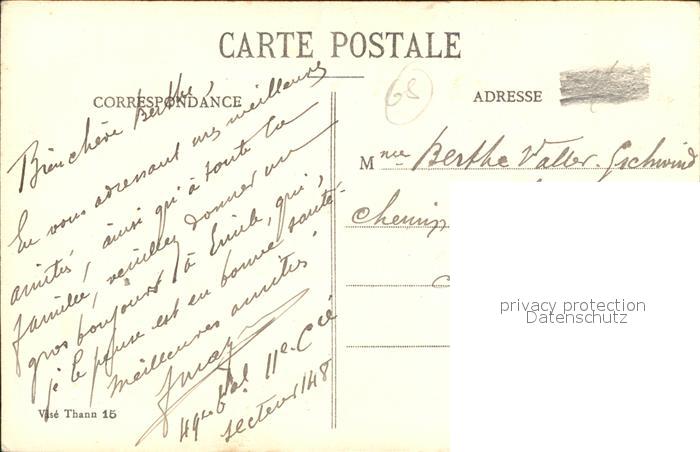 CARTE POSTALE
CORRESPONDANCE
ADRESSE
68
Bien chère Berthe,
En vous adressant mes meilleures
amitiés, ainsi qu'à toute la
famille, veuillez donner un
gros bonjour à Emile, qui,
je le pense est en bonne santé.
Meilleures amitiés.
49me bal 11e Cie
secteur 148
Visé Thann 15
Mme Berthe Valler-Gschwind
Chemin
privacy protection
Datenschutz